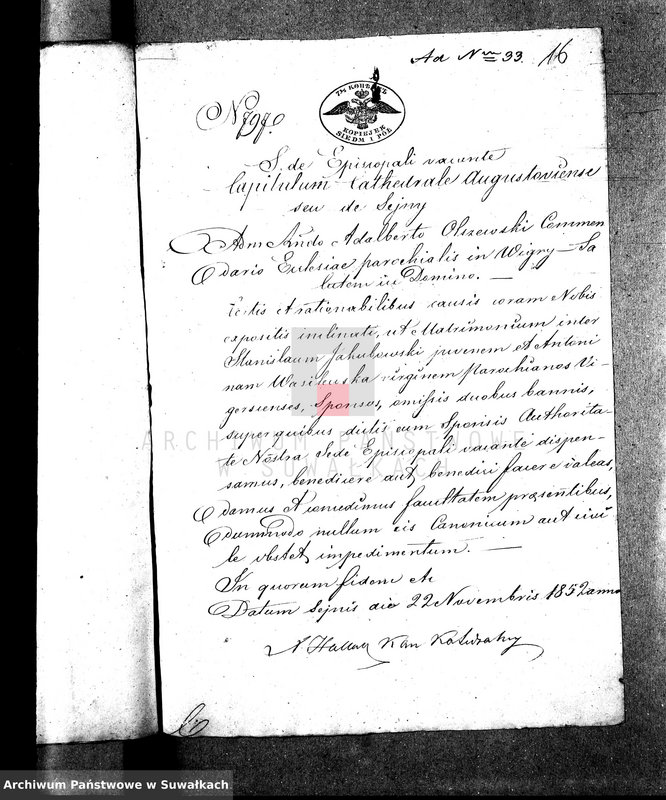 Ad Nrm 33. 16
N 797.
KOPIEJEK
SIEDM I PÓŁ
S. de Episcopali vacante
Capitulum Cathedrale Augustoviense
seu de Sejny
Adm Rndo Adalberto Olszewski Commen
dario Eclesiae parochialis in Wigry – Sa
lutem in Domino. —
Certis et rationabilibus causis coram Nobis
expositis inclinati, ut Matrimonium inter
Stanislaum Jakubowski juvenem et Antoni
nam Wasilewska virginem Parochianos Vi-
gersienses, Sponsos, omissis duobus bannis,
super quibus dictis cum Sponsis Authorita-
te Nostra Sede Episcopali vacante dispen-
samus, benedicere aut benedici facere valeas,
damus et concedimus facultatem praesentibus,
dummodo nullum eis Canonicum aut civi
le obstet impedimentum. —
In quorum fidem etc
Datum Sejnis die 22 Novembris 1852 anno
Kan Katedralny
ARCHIWUM PAŃSTWOWE
W SUWAŁKACH
Archiwum Państwowe w Suwałkach